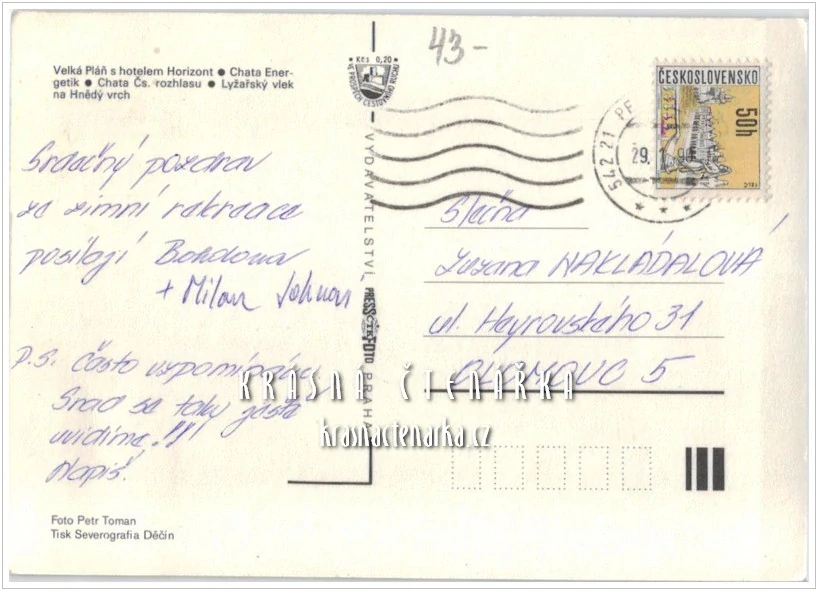 43-
Velká Pláň s hotelem Horizont ● Chata Ener-
getik ● Chata Čs. rozhlasu ● Lyžařský vlek
na Hnědý vrch
Kčs 0,20
VE PROSPĚCH CESTOVNÍHO RUCHU
ČESKOSLOVENSKO
50h
542 21 PE
29.1.
Srdečný pozdrav
ze zimní rekreace
posílají Bohdana
+ Milan
P.S. Často vzpomínáme
Snad se taky zase
uvidíme!!!
Napiš!
Slečna
Zuzana NAKLÁDALOVÁ
ul. Heyrovského 31
OLOMOUC 5
VYDAVATELSTVÍ PRESSFOTO PRAHA
ČTK
KRÁSNÁ ČTENÁŘKA
krasnactenarka.cz
Foto Petr Toman
Tisk Severografia Děčín